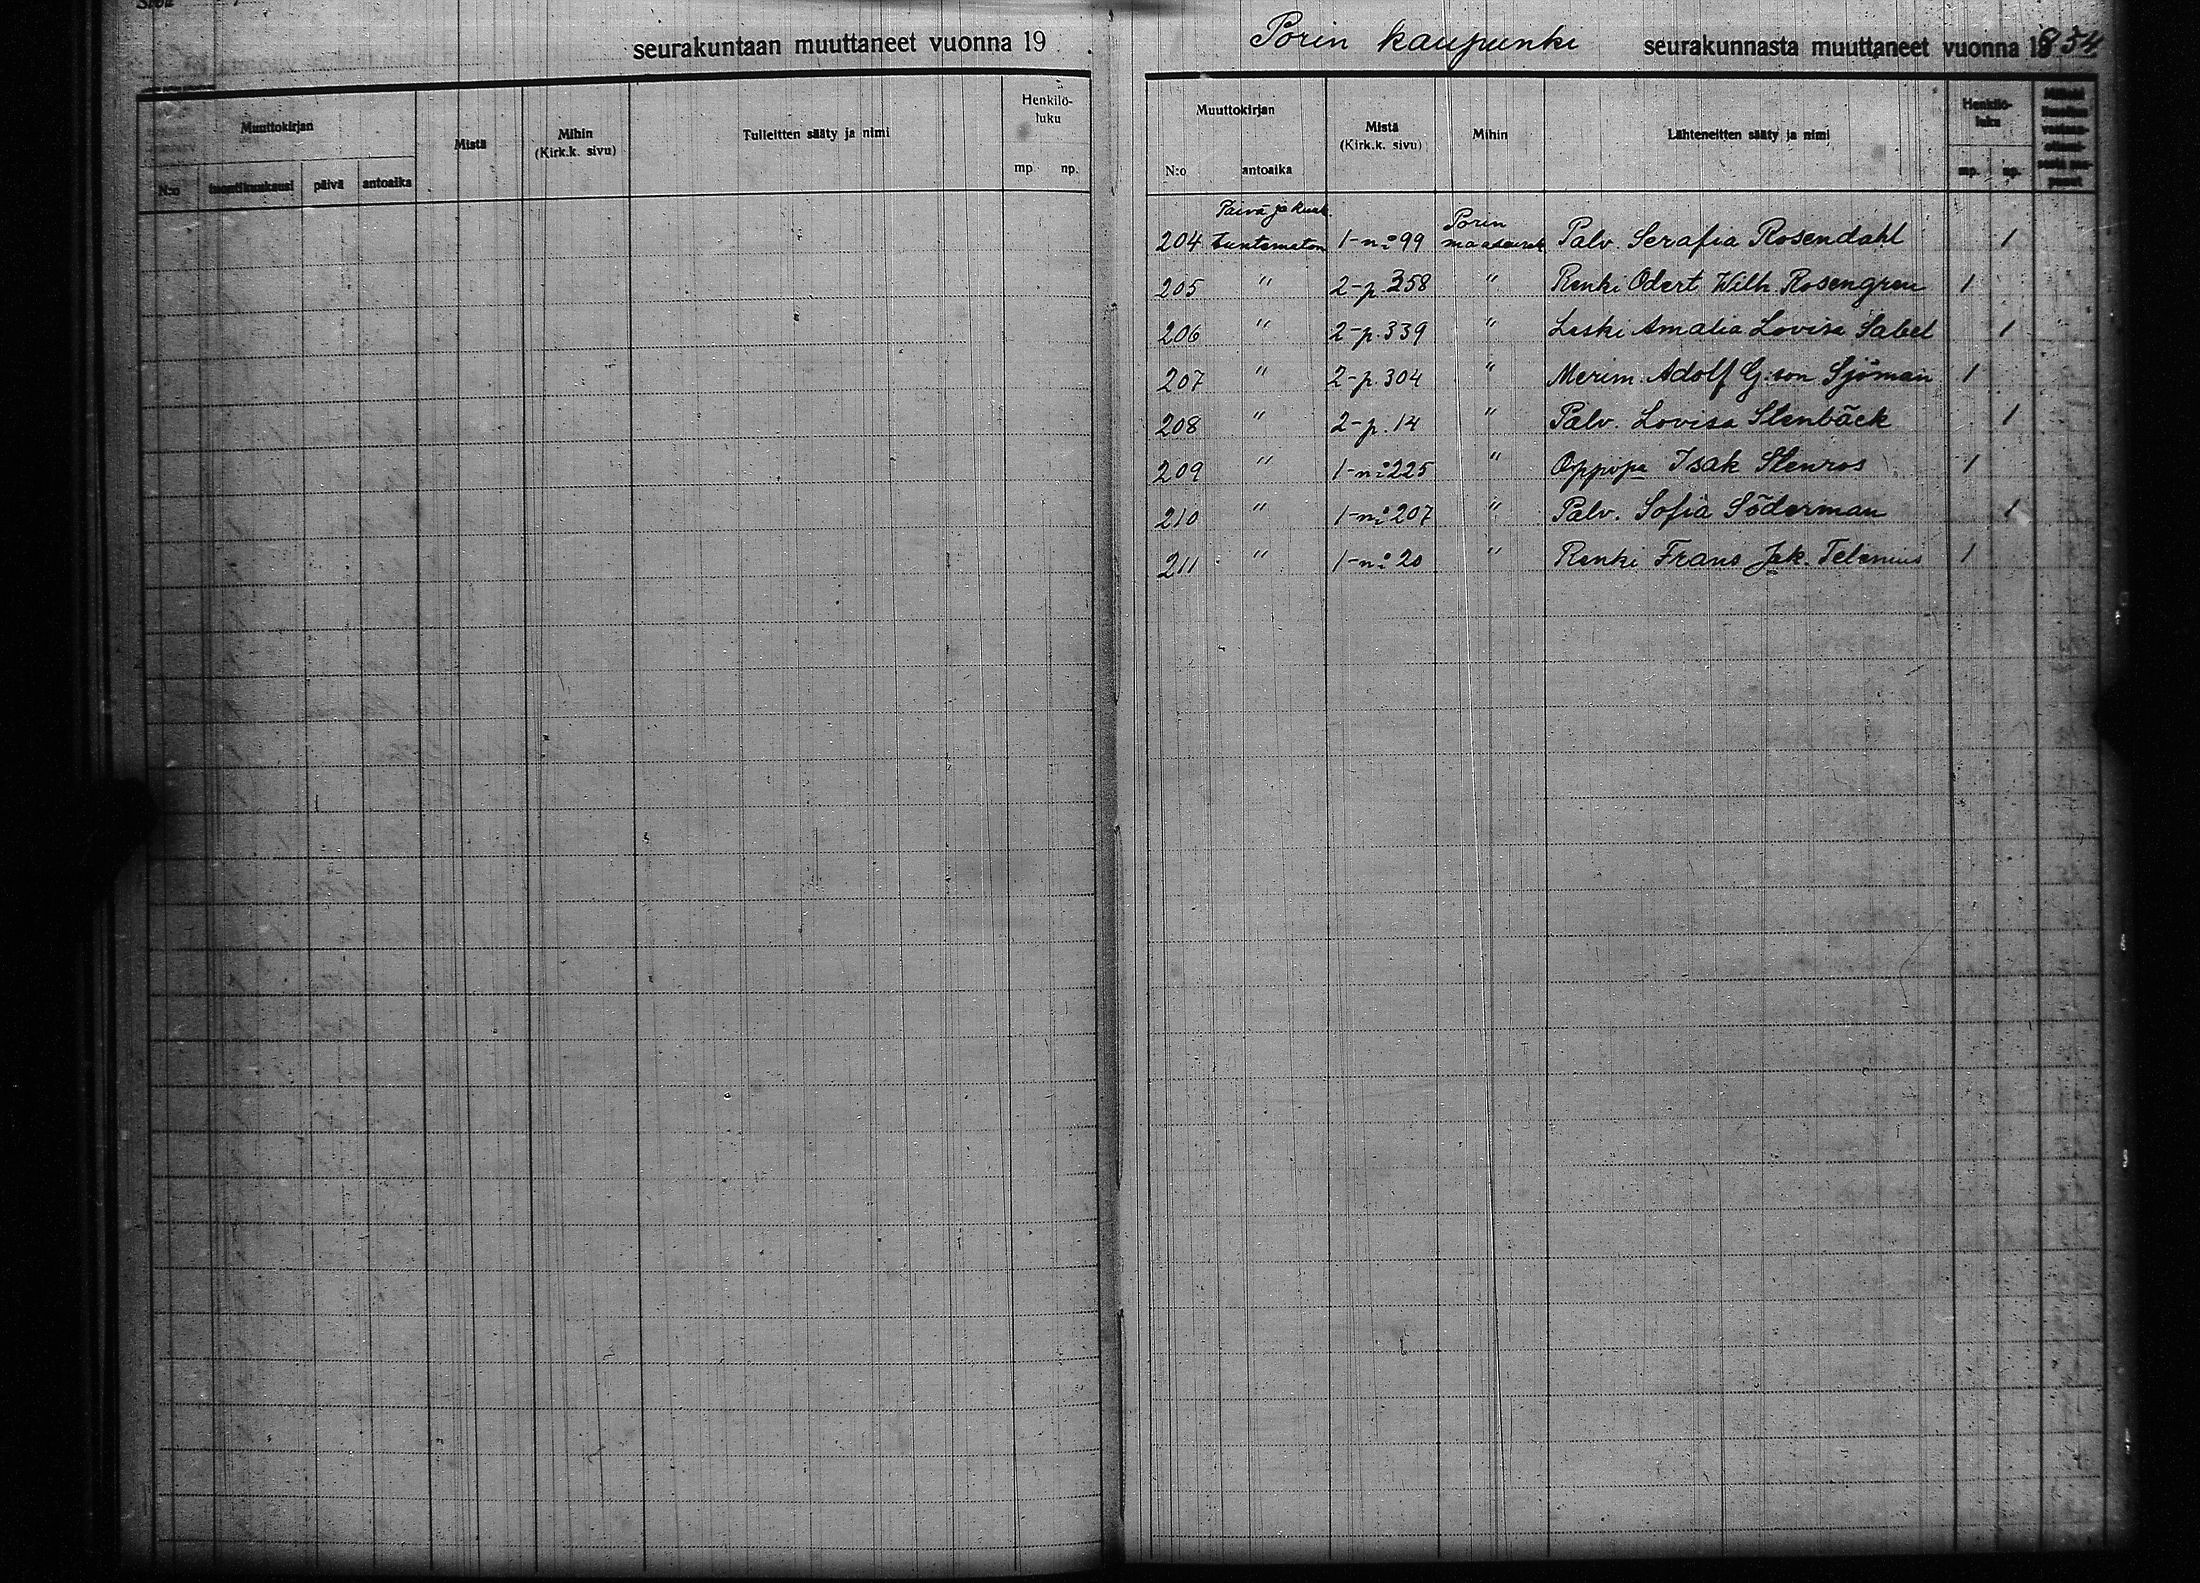 Sivu
seurakuntaan muuttaneet vuonna 19
Muuttokirjan
Mistä
Mihin
(Kirk.k. sivu)
Tulleitten sääty ja nimi
Henkilö-
luku
N:o tuontikuukausi päivä antoaika
mp. np.
Porin kaupunki seurakunnasta muuttaneet vuonna 1854
Muuttokirjan
Mistä
(Kirk.k. sivu)
Mihin
Lähteneitten sääty ja nimi
Henkilö-
luku
N:o antoaika
mp. np.
Päivä ja kuuk. Porin
204 tuntematon 1-n:o 99 maaseurak Palv. Serafia Rosendahl 1
205 " 2-p. 358 " Renki Odert Wilh. Rosengren 1
206 " 2-p. 339 " Leski Amalia Lovisa Sabel 1
207 " 2-p. 304 " Merim. Adolf G:son Sjöman 1
208 " 2-p. 14 " Palv. Lovisa Stenbäck 1
209 " 1-n:o 225 " Oppipa Isak Stenros 1
210 " 1-n:o 207 " Palv. Sofia Söderman 1
211 " 1-n:o 20 " Renki Frans Jak. Telenius 1